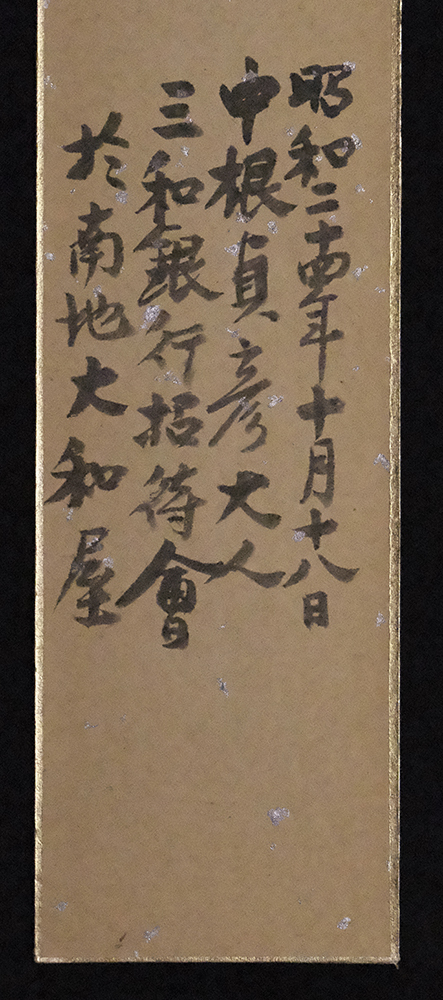 昭和二十四年十月十八日
中根貞彦大人
三和銀行招待會
於南地大和屋